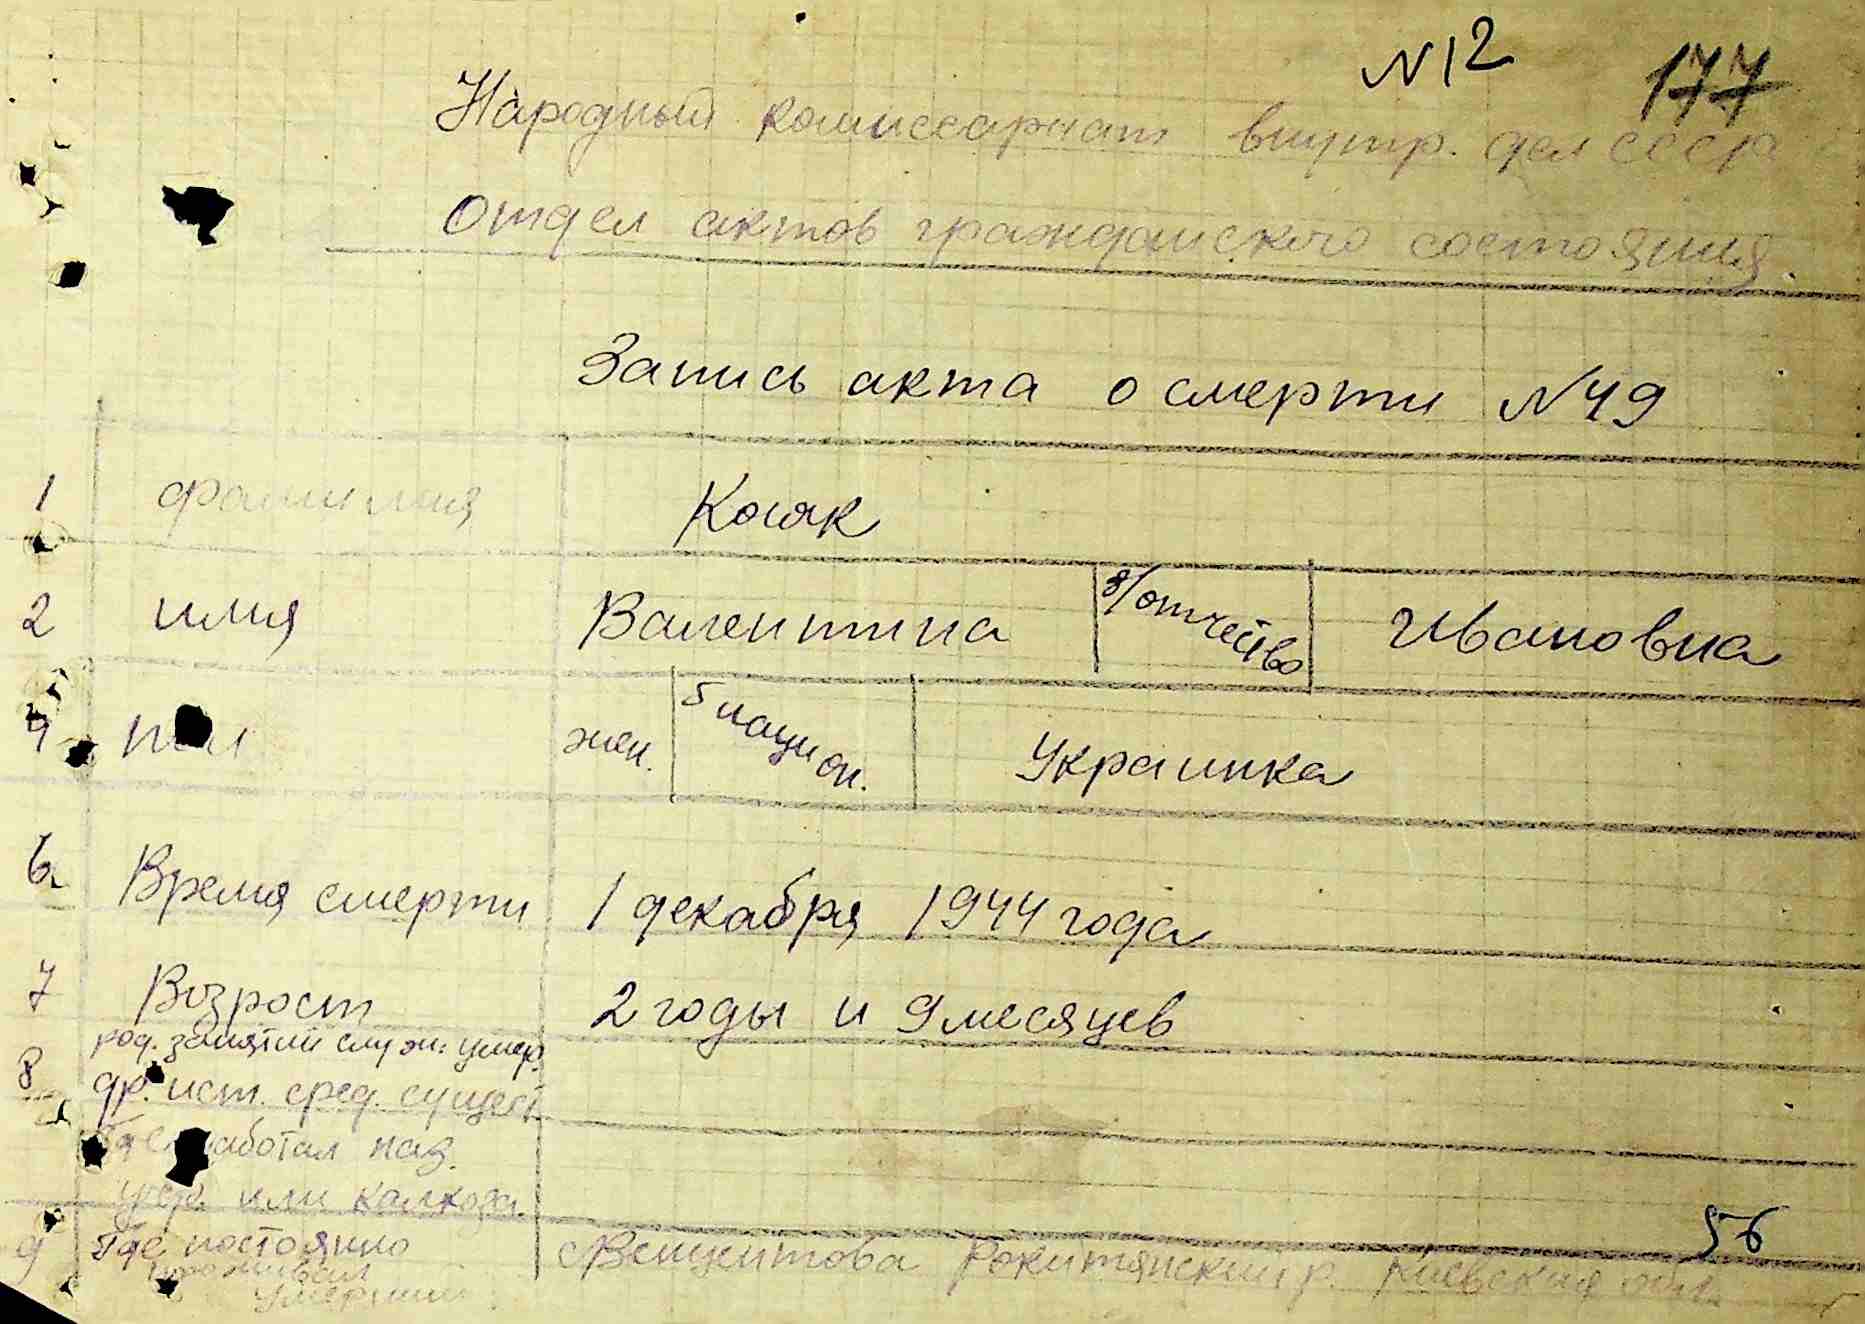 N12 177
Народный комиссариат внутр. дел СССР
Отдел актов гражданского состояния.
Запись акта о смерти N49
1 фамилия Косяк
2 имя Валентина 3/отчество Ивановна
4 пол жен. 5 национ. Украинка
6 Время смерти 1 декабря 1944 года
7 Возраст 2 годы и 9 месяцев
род. занятий служ: умер.
8 др. ист. сред. сущест
Где работал наз.
учер. или колхоза.
56
9 Где постоянно с Винцентовка Рокитянский р. Киевская обл.
проживал
умерший